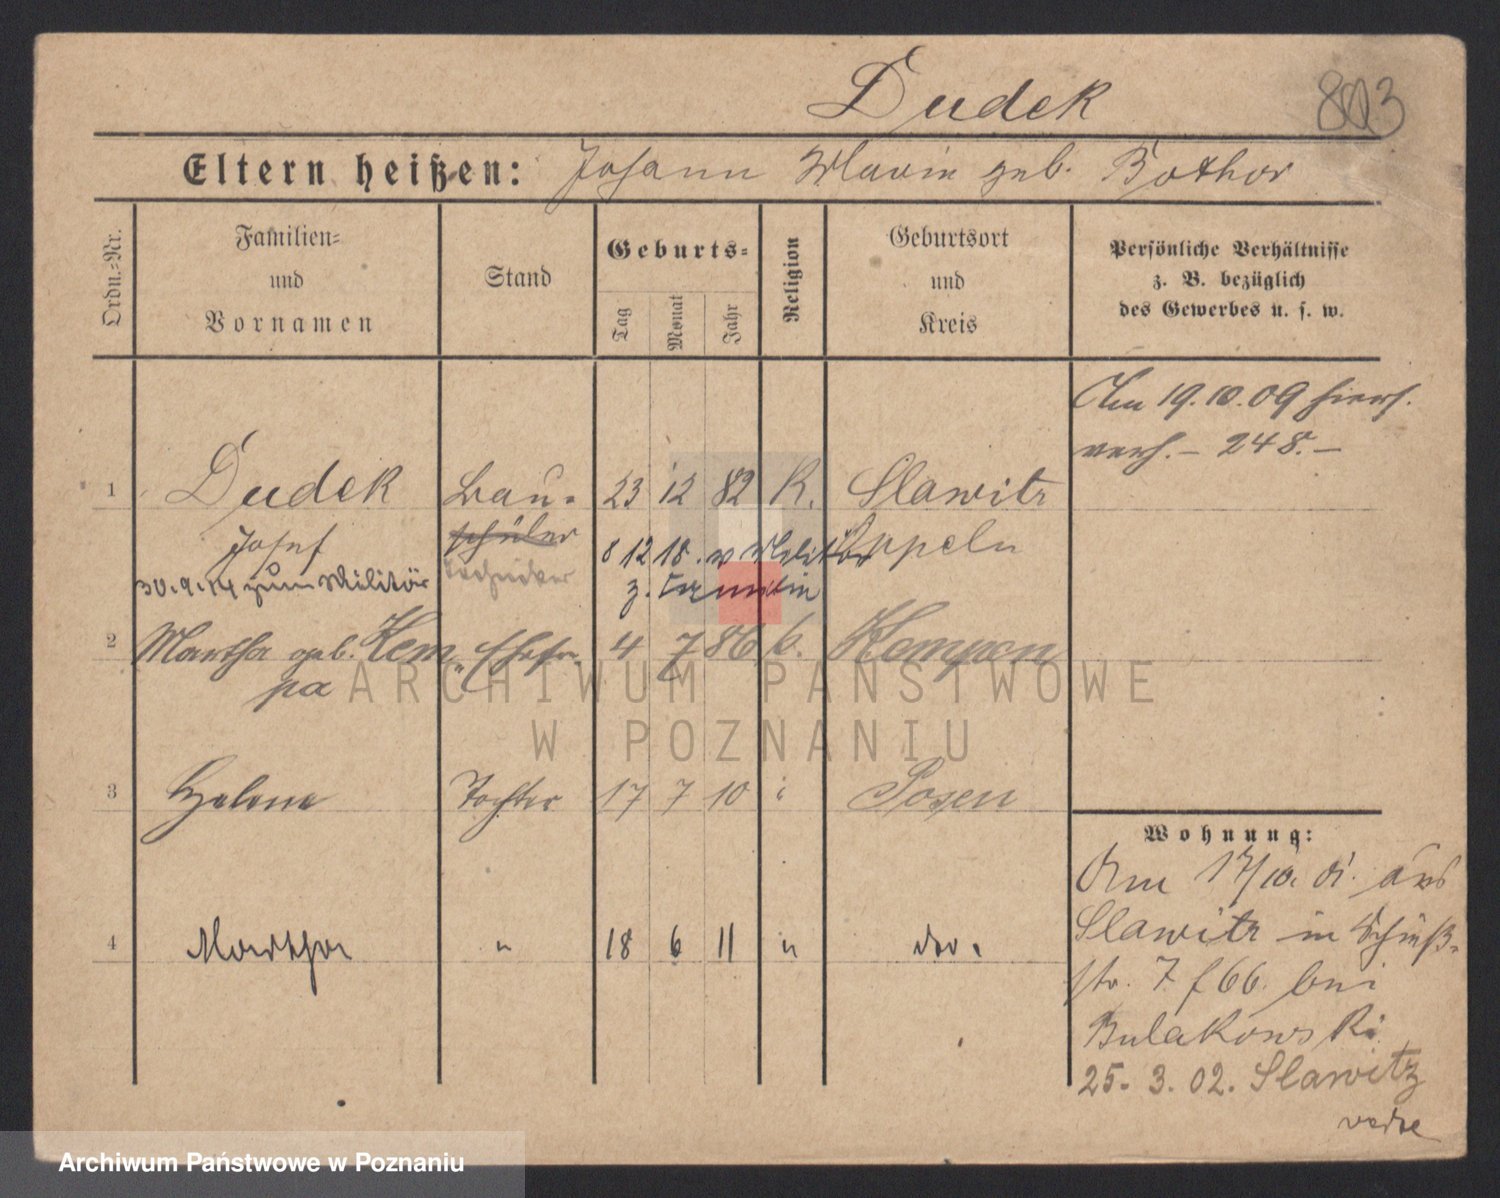 Dudek 803
Eltern heißen: Johann Marie geb. Bothor
Ordn.=Nr.
Familien=
und
Vornamen
Stand
Geburts=
Tag Monat Jahr
Religion
Geburtsort
und
Kreis
Persönliche Verhältnisse
z. B. bezüglich
des Gewerbes u. s. w.
Am 19.10.09 hiers.
verh. – 248. –
1 Dudek Bau= 23 12 82 K. Slawitz
Josef schüler 8 12 18. v Militär Oppeln
30.9.14 zum Militär Techniker z.
2 Martha geb. Kem= Ehefr. 4 7 86 k. Kempen
pa
3 Helene Tochter 17 7 10 Posen
4 Martha " 18 6 11 " do.
Wohnung:
Am 17/10. 01. aus
Slawitz in Schieß=
str. 7 f 66. bei
Bulakowski
25. 3. 02. Slawitz
ARCHIWUM PAŃSTWOWE
W POZNANIU
Archiwum Państwowe w Poznaniu